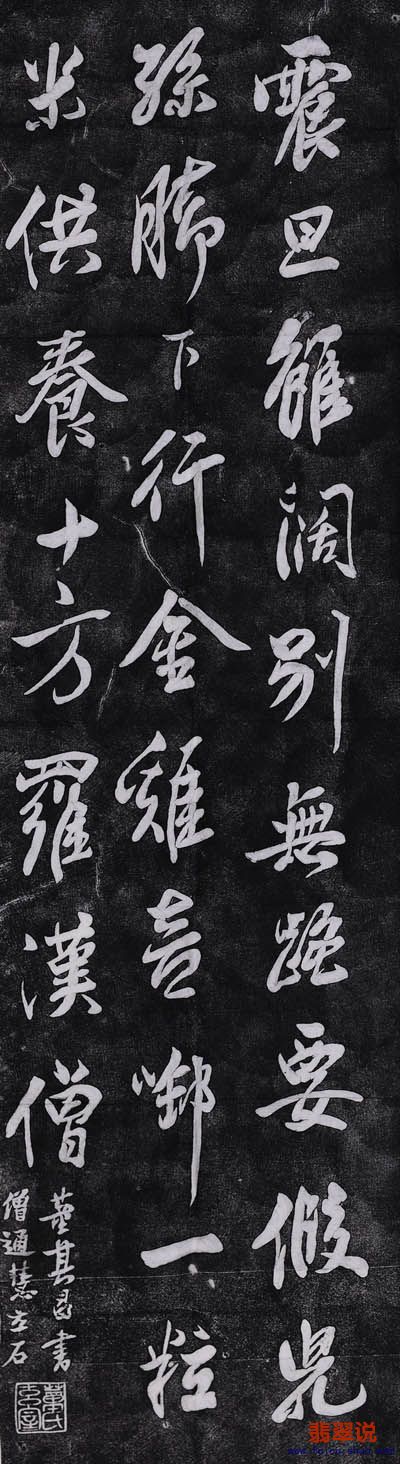 震旦雖闊別無路要假兒
孫腳下行金雞啣一粒
米供養十方羅漢僧
董其昌書
僧通慧立石
董氏玄宰
翡翠说